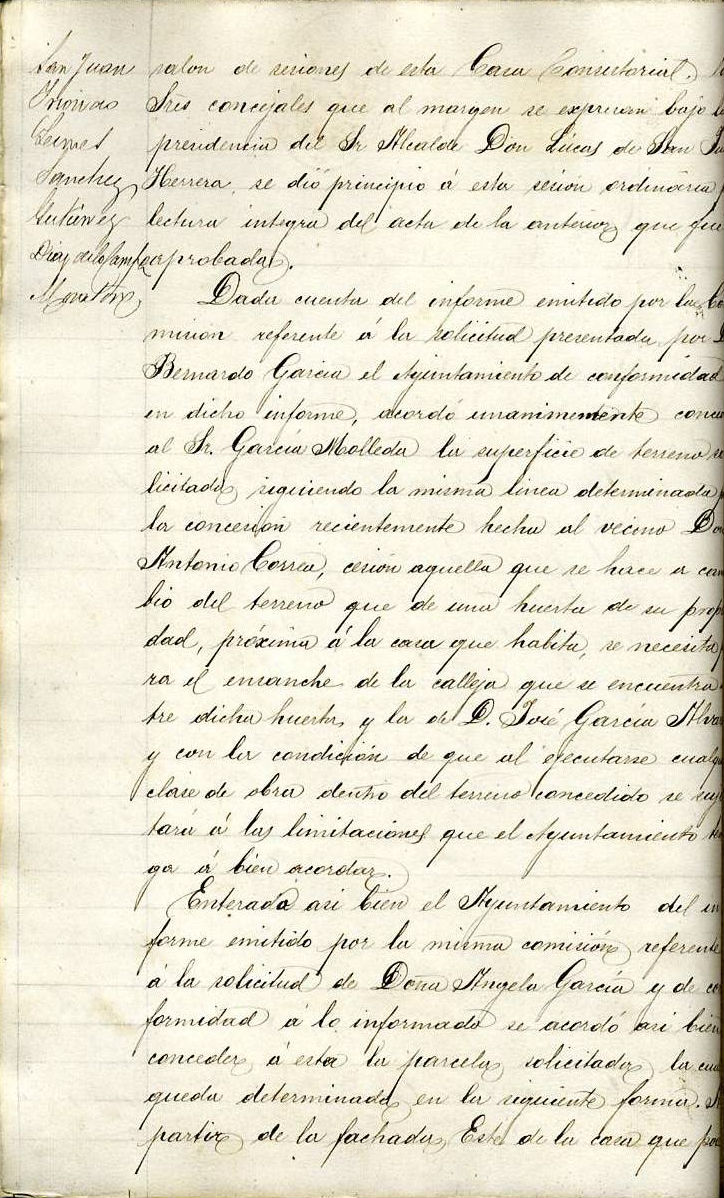 San Juan
Gómez
Sanchez
Gutierrez
Diaz de la Campa
salon de sesiones de esta Casa Consistorial.
Sres concejales que al margen se expresan bajo la
presidencia del Sr Alcalde Don Lúcas de San Ju
Herrera, se dió principio á esta sesion ordinaria
lectura integra del acta de la anterior que fue
aprobada.
Dada cuenta del informe emitido por la Co
mision referente á la solicitud presentada por D
Bernardo Garcia el Ayuntamiento de conformidad
en dicho informe, acordó unanimemente conce
al Sr. García Molleda la superficie de terreno so
licitada siguiendo la misma linea determinada p
la concesión recientemente hecha al vecino Don
Antonio Correa, cesión aquella que se hace a cam
bio del terreno que de una huerta de su propi
dad, próxima á la casa que habita, se necesita p
ra el ensanche de la calleja que se encuentra
tre dicha huerta y la de D. José García Alva
y con la condición de que al ejecutarse cualqu
clase de obra dentro del terreno concedido se suje
tará á las limitaciones que el Ayuntamiento ten
ga á bien acordar.
Enterada asi bien el Ayuntamiento del in
forme emitido por la misma comisión referente
á la solicitud de Doña Angela García y de co
formidad á lo informado se acordó asi bien
conceder á esta la parcela solicitada la cua
queda determinada en la siguiente forma. A
partir de la fachada Este de la casa que po